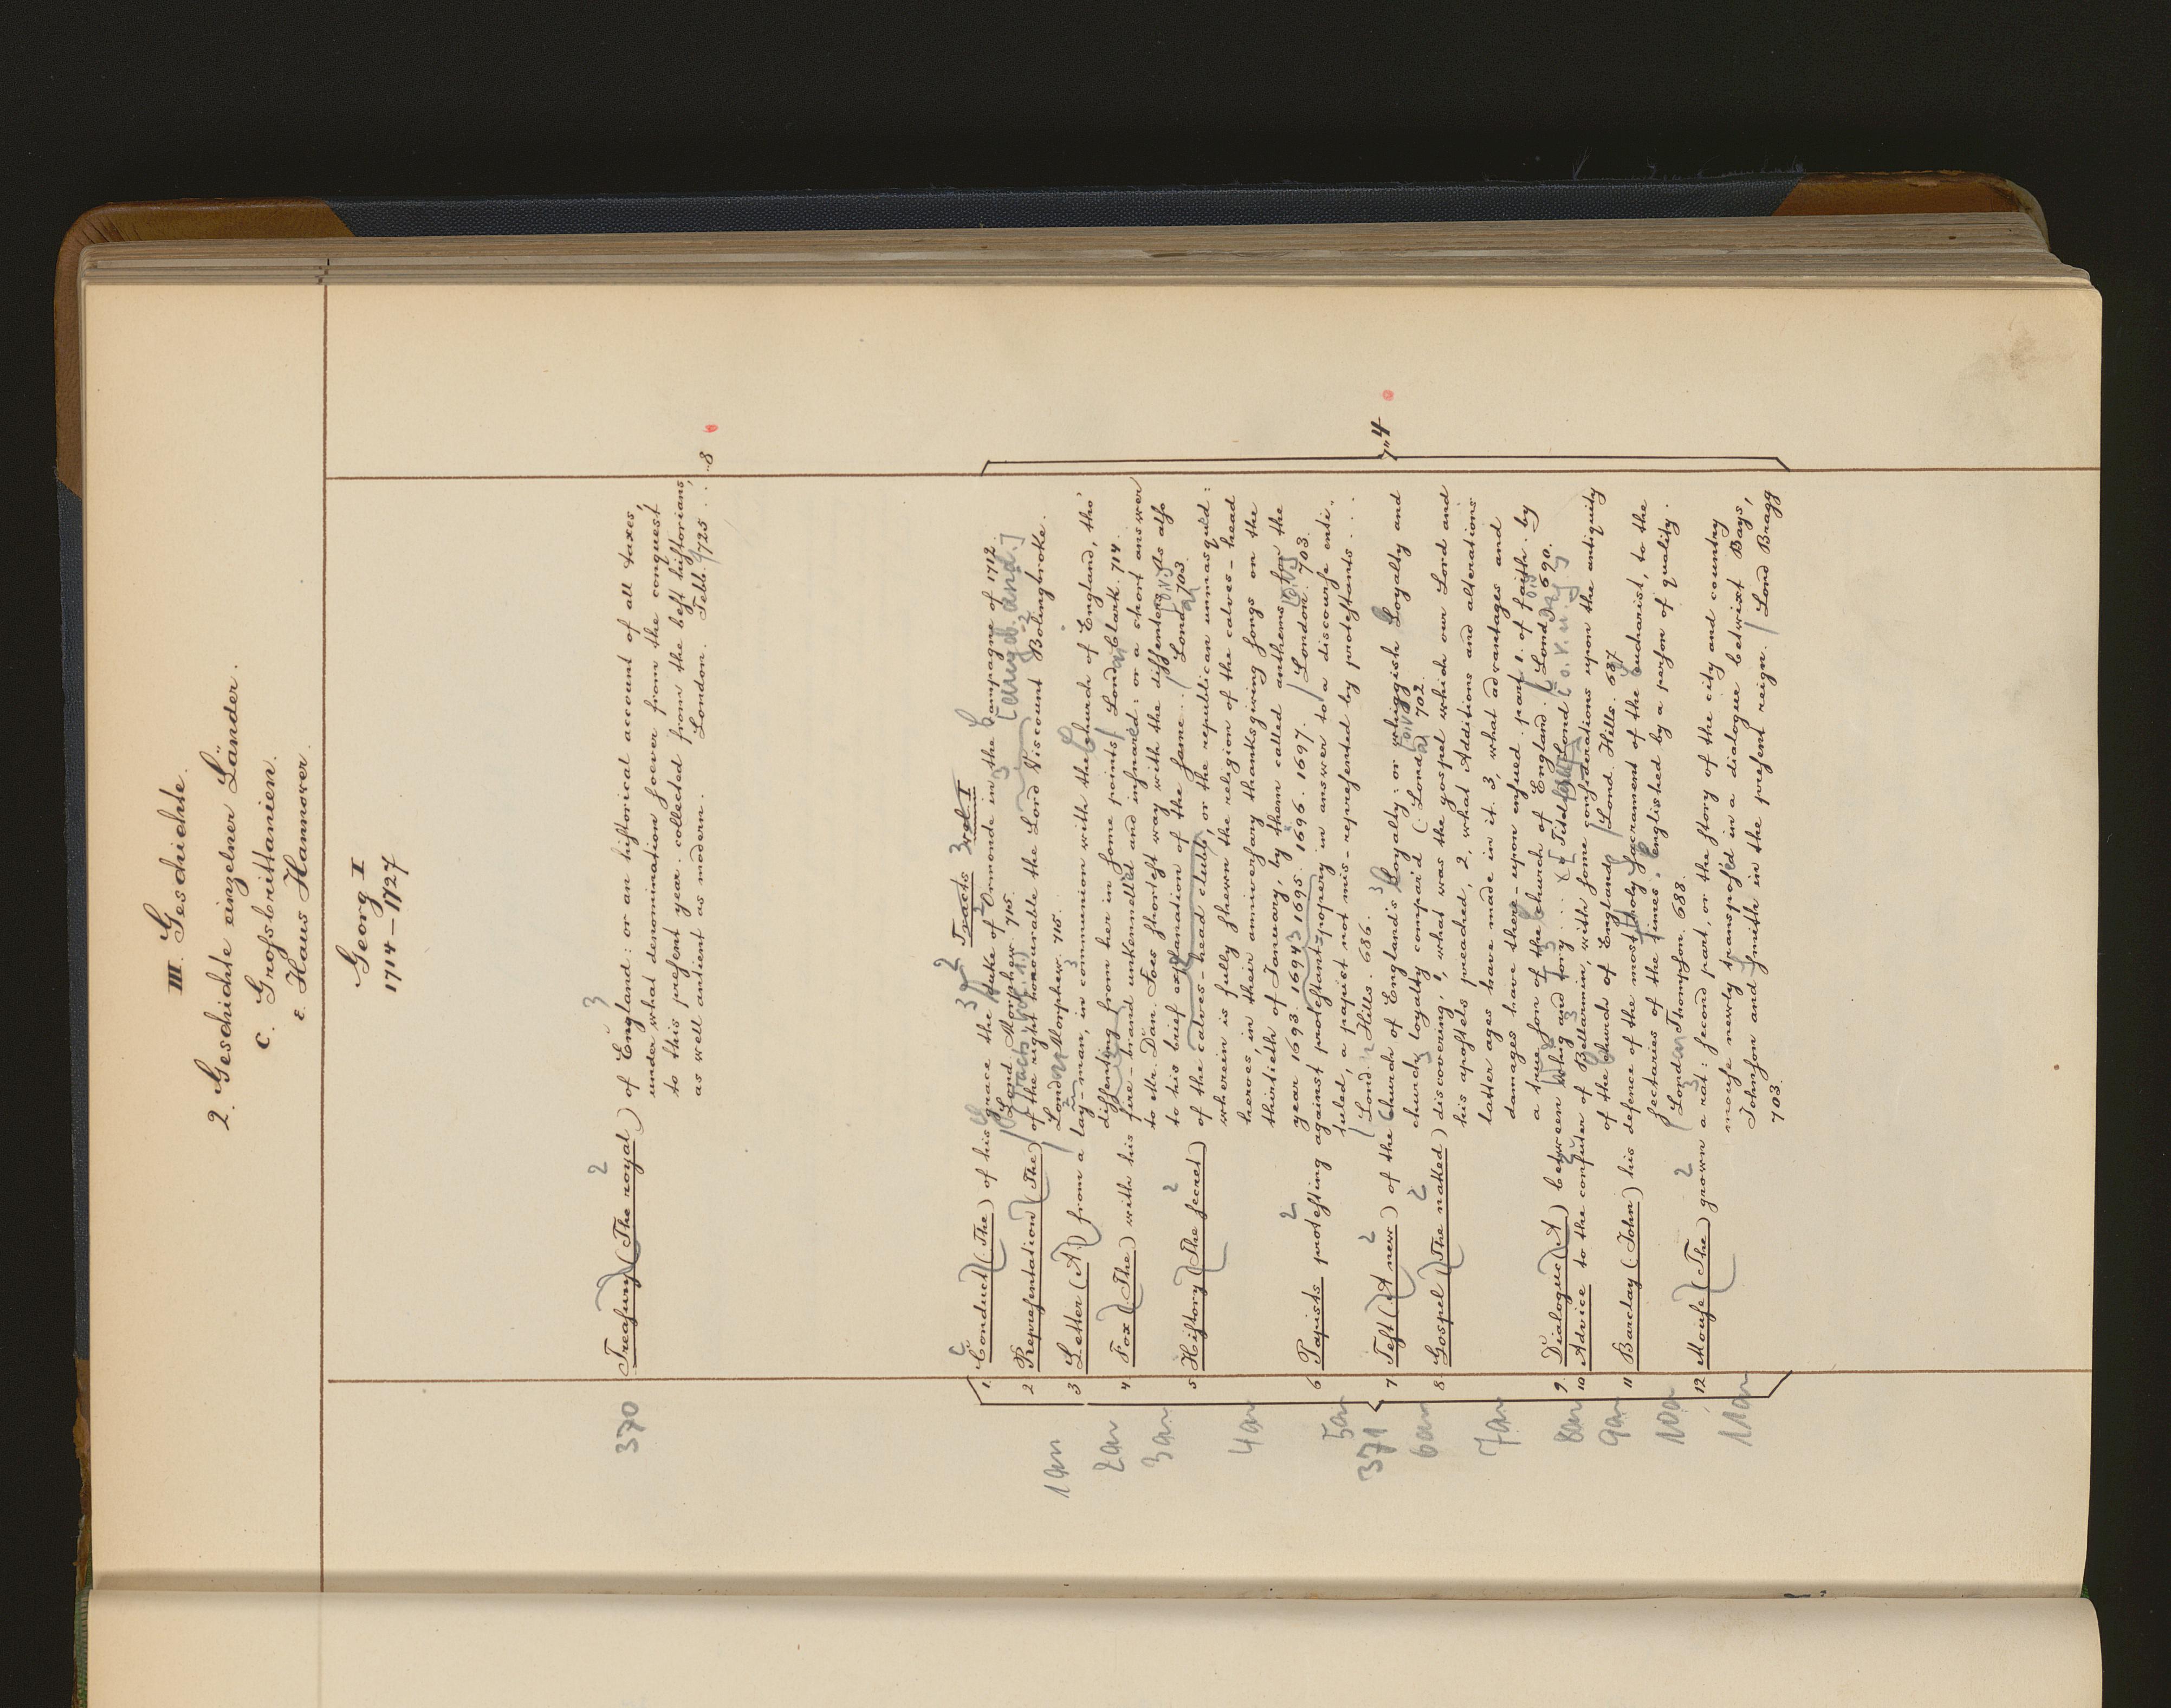 III. Geschichte.
2. Geschichte einzelner Länder.
c. Grossbrittanien.
ε. Haus Hannover.
Georg I
1714–1727
370 Treaſury (The royal) of England: or an hiſtorical account of all taxes,
under what denomination ſoever from the conquest
to this preſent year. collected from the beſt hiſtorians,
as well antient as modern. London. Tebb. 725 . . 8
Tracts vol. I
1. Conduct (The) of his grace the duke of Ormonde in the Campagne of 1712.
Lond. Morphew. 715.
2 Repreſentation (The) of the right honourable the Lord Viscount Bolingbroke.
London Morphew. 715.
3 Letter (A) from a lay-man, in communion with the church of England, tho'
diſſenting from her in ſome points. London Clark. 714.
4 Fox (The) with his fire-brand unkennell'd and inſnared: or a short answer
to Mr. Dan. Foes ſhorteſt way with the diſſenters. As alſo
to his brief explanation of the ſame . . London 703.
5 Hiſtory (The ſecret) of the calves-head clubb, or the republican unmasqu'd:
wherein is fully ſhewn the religion of the calves-head
heroes, in their anniverſary thanksgiving ſongs on the
thirtieth of January, by them called anthems, for the
year 1693. 1694. 1695. 1696. 1697. London. 703.
6 Papists proteſting against proteſtant-popery in answer to a discourſe enti-
tuled, a papist not mis-repreſented by proteſtants . . .
Lond. Hills. 686.
7 Teſt (A new) of the church of England's Loyalty: or whiggish Loyalty and
church loyalty compar'd (London 702.
8. Gospel (The naked) discovering. 1, what was the gospel which our Lord and
his apoſtels preached, 2, what Additions and alterations
latter ages have made in it. 3, what advantages and
damages have there-upon enſued. part 1. of faith. by
a true ſon of the church of England. London 690.
9. Dialogue (A) between whig and tory . . .
10 Advice to the confuter of Bellarmin, with ſome conſiderations upon the antiquity
of the church of England. Lond. Hills. 687.
11 Barclay (John) his defence of the most holy ſacrament of the eucharist, to the
ſectaries of the times, engliſhed by a perſon of quality.
London Thompſon. 688.
12 Mouſe (The) grown a rat: ſecond part, or the ſtory of the city and country
mouſe newly transpoſ'd in a dialogue betwixt Bays,
Johnſon and ſmith in the preſent reign. Lond Bragg
703.
371
4
1an
2an
3an
4an
5an
6an
7an
8an
9an
10an
11an